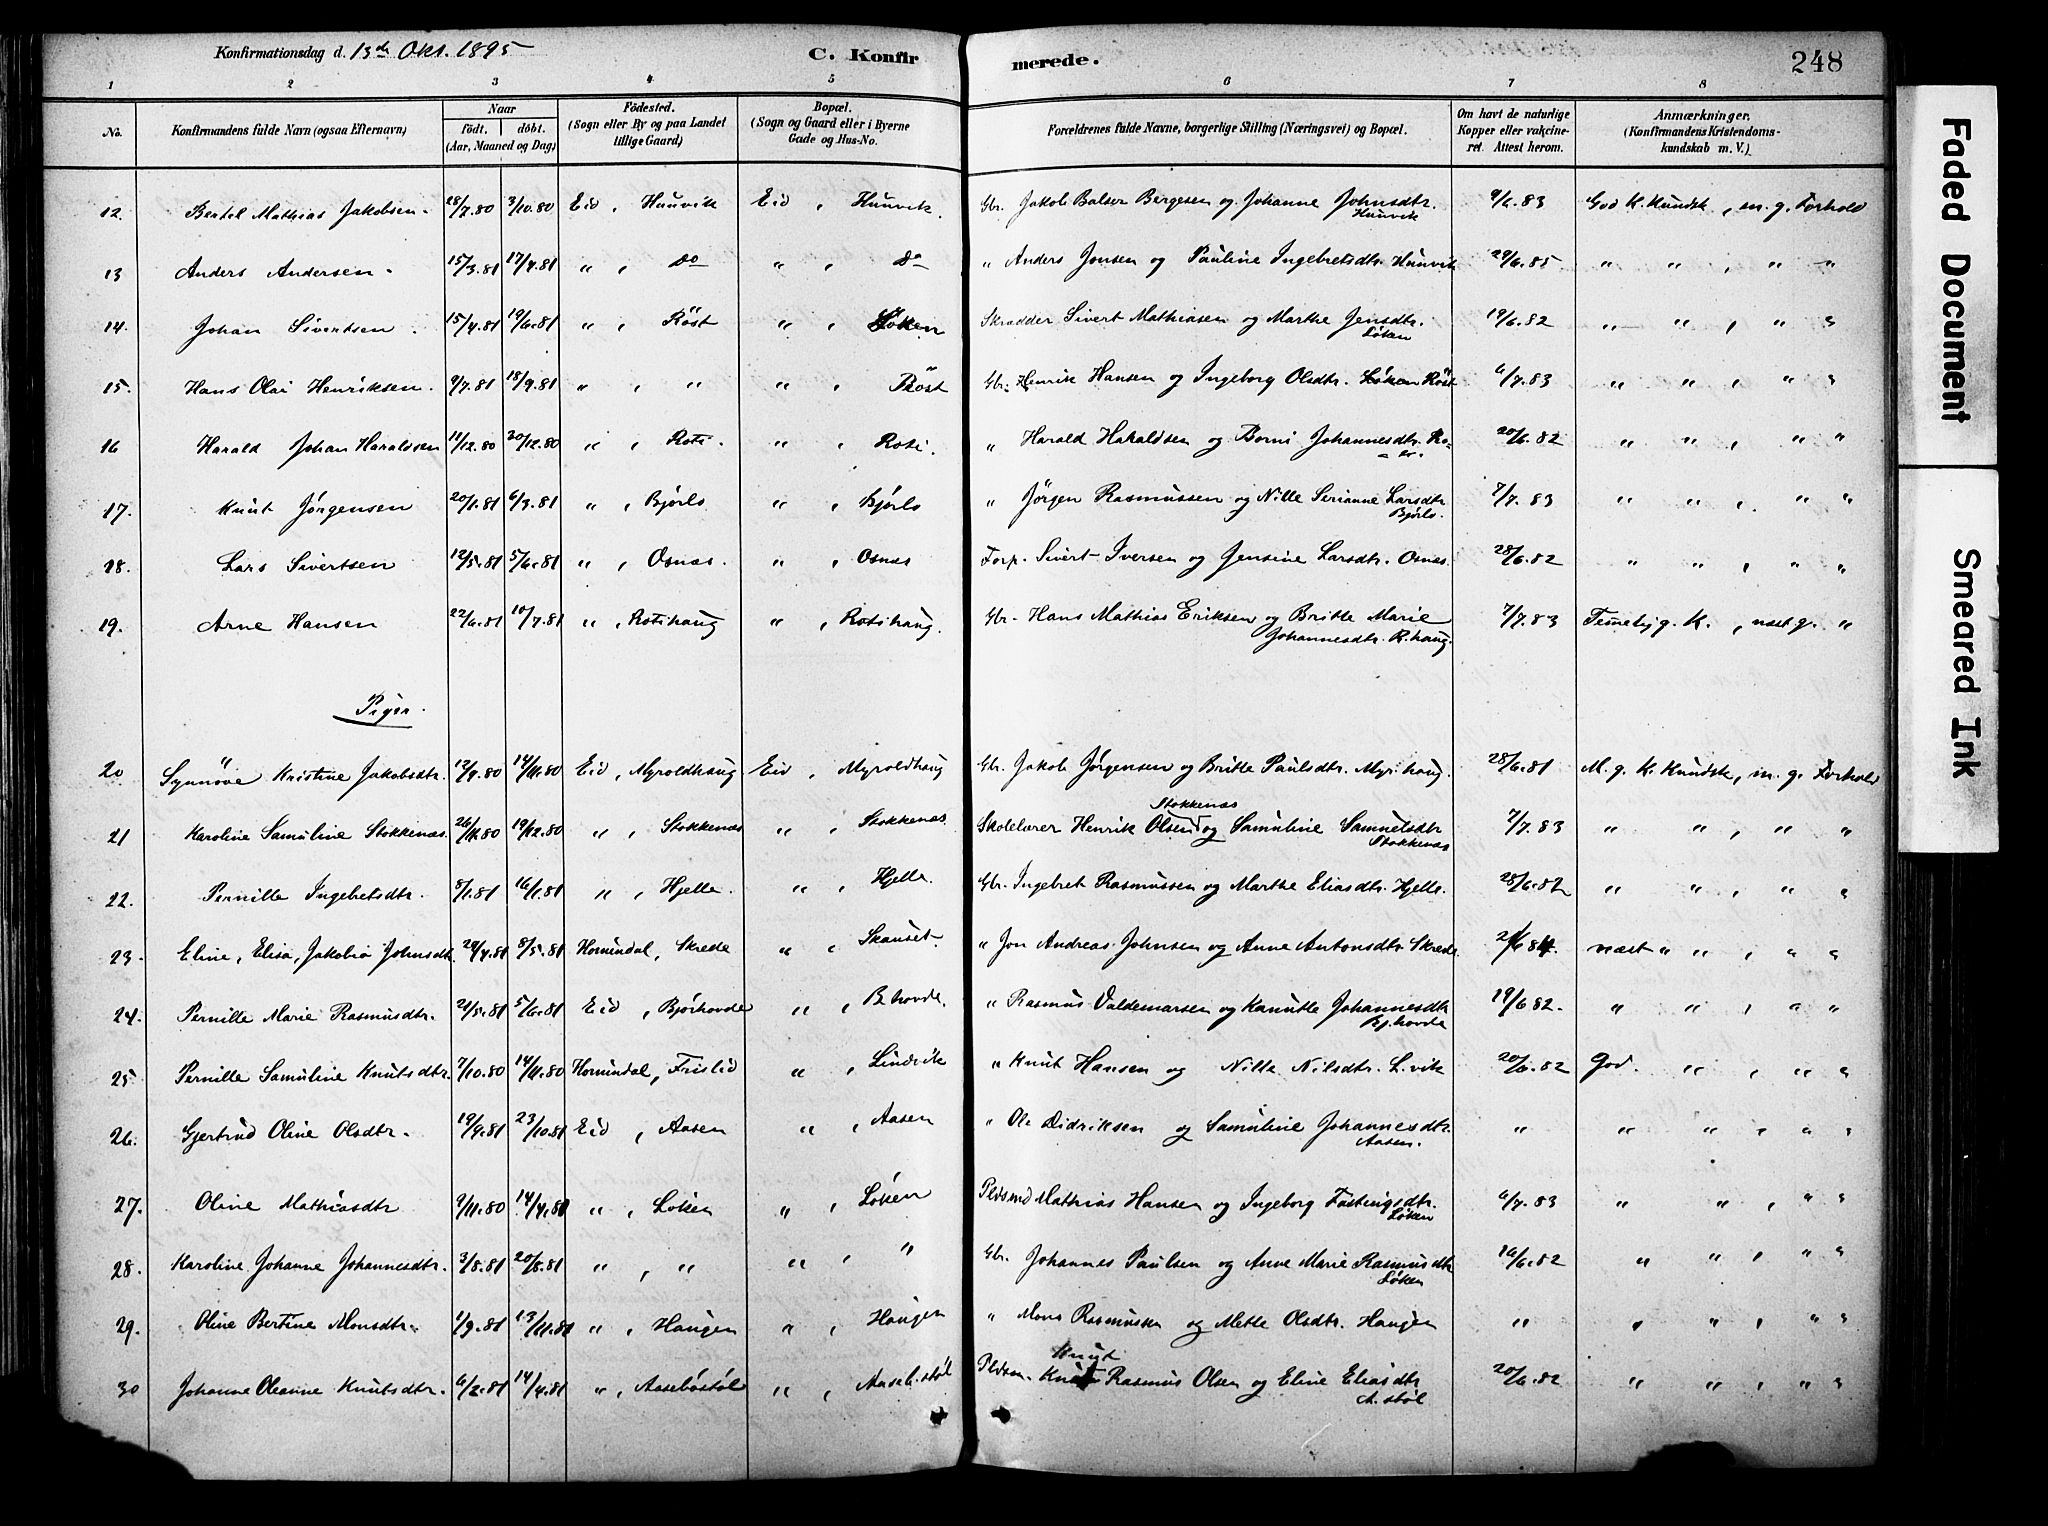 Konfirmationsdag d. 13de Okt. 1895
C. Konfirmerede.
248
1 2 3 4 5 6 7 8
No. Konfirmandens fulde Navn (ogsaa Efternavn) Naar födt. döbt. (Aar, Maaned og Dag) Födested. (Sogn eller By og paa Landet tillige Gaard) Bopæl. (Sogn og Gaard eller i Byerne Gade og Hus-No. Forældrenes fulde Navne, borgerlige Stilling (Næringsvei) og Bopæl. Om havt de naturlige Kopper eller vakcineret. Attest herom. Anmærkninger. (Konfirmandens Kristendomskundskab m. V.)
12. Bertel Mathias Jakobsen. 28/7.80 3/10.80 Eid, Hunvik Eid, Hunvik. Gbr. Jakob Balser Bergesen og Johanne Johnsdtr. Hunvik 9/6.83 God K. Kundsk, m. g. Forhold
13 Anders Andersen. 15/3.81 17/4.81 " , do " , do " Anders Jonsen og Pauline Ingebretsdtr. Hunvik 29/6.85 " " , " "
14. Johan Sivertsen. 15/4.81 19/6.81 " , Röst " , Löken Skrædder Sivert Mathiasen og Marthe Jensdtr. Löken 19/6.82 " " , " "
15. Hans Olai Henriksen. 9/7.81 18/9.81 " , " " , Röst Gbr. Henrik Hansen og Ingeborg Olsdtr. Löken Röst 6/7.83 " " , " "
16 Harald Johan Haraldsen 11/12.80 20/12.80 " , Roti. " , Roti. " Harald Hakaldsen og Borni Johannesdtr. 20/6.82 " " , " "
17. Knut Jørgensen 20/1.81 6/3.81 " , Bjørlo " , Bjørlo " Jørgen Rasmussen og Nille Serianne Larsdtr Bjørlo. 7/7.83 " " , " "
18. Lars Sivertsen 12/5.81 5/6.81 " , Osnæs. " , Osnæs Forp. Sivert Iversen og Jensine Larsdtr. Osnæs. 28/6.82 " " , " "
19. Arne Hansen 22/6.81 10/7.81 " , Rotihaug " , Rotihaug. Gbr. Hans Mathias Eriksen og Britte Marie Johannesdtr. R.haug. 7/7.83 Temelig g. K., næst g. "
Piger.
20 Synnöve Kristine Jakobsdtr. 12/9.80 14/11.80 Eid, Myroldhaug Eid, Myroldhaug Gbr. Jakob Jørgensen og Britte Paulsdtr. Myr.haug. 28/6.81 M. g. K. Kundsk, m. g. Forhold
21 Karoline Samuline Stokkenæs. 26/11.80 19/12.80 " , Stokkenæs " , Stokkenæs. Skolelærer Henrik Olsen Stokkenæs og Samuline Samuelsdtr Stokkenæs 7/7.83 " " , " "
22. Pernille Ingebretsdtr. 8/1.81 16/1.81 " , Hjelle. " , Hjelle. Gbr. Ingebret Rasmussen og Marthe Eliasdtr. Hjelle. 28/6.82 " " , " "
23. Eline, Elisa, Jakobia Johnsdtr. 29/4.81 8/5.81 Hornindal, Skrede " , Skauset. " Jon Andreas Johnsen og Anne Antonsdtr Skrede. næst " " , " "
24. Pernille Marie Rasmusdtr. 21/5.81 5/6.81 Eid, Bjørhovde " , B hovde. " Rasmus Valdemarsen og Kanutte Johannesdtr Bj.hovde 19/6.82. " " , " "
25 Pernille Samuline Knutsdtr. 7/10.80 14/11.80 Hornindal, Frislid " , Lindvik " Knut Hansen og Nille Nilsdtr. L.vik 20/6.82 God. " , " "
26. Gjertrud Oline Olsdtr. 19/9.81 23/10.81 Eid, Aasen " , Aasen " Ole Didriksen og Samuline Johannesdtr. Aasen. " " " , " "
27. Oline Mathiasdtr 9/11.80 14/4.81 " , Löken " , Löken Pldsmd Mathias Hansen og Ingeborg Fastingsdtr. Löken 6/7.83 " " , " "
28. Karoline Johanne Johannesdtr. 3/8.81 20/8.81 " , " " , " Gbr. Johannes Paulsen og Anne Marie Rasmusdtr Löken 16/6.82 " " , " "
29. Oline Bertine Monsdtr. 1/9.81 13/11.81 " , Haugen " , Haugen " Mons Rasmussen og Mette Olsdtr. Haugen " " " , " "
30 Johanne Oleanne Knutsdtr. 6/2.81 14/4.81 " , Aasebøstöl " , Aaseb.stöl Pldsm. Knut Rasmus Olsen og Eline Eliasdtr A.støl 20/6.82 " " , " "
Faded Document
Smeared Ink